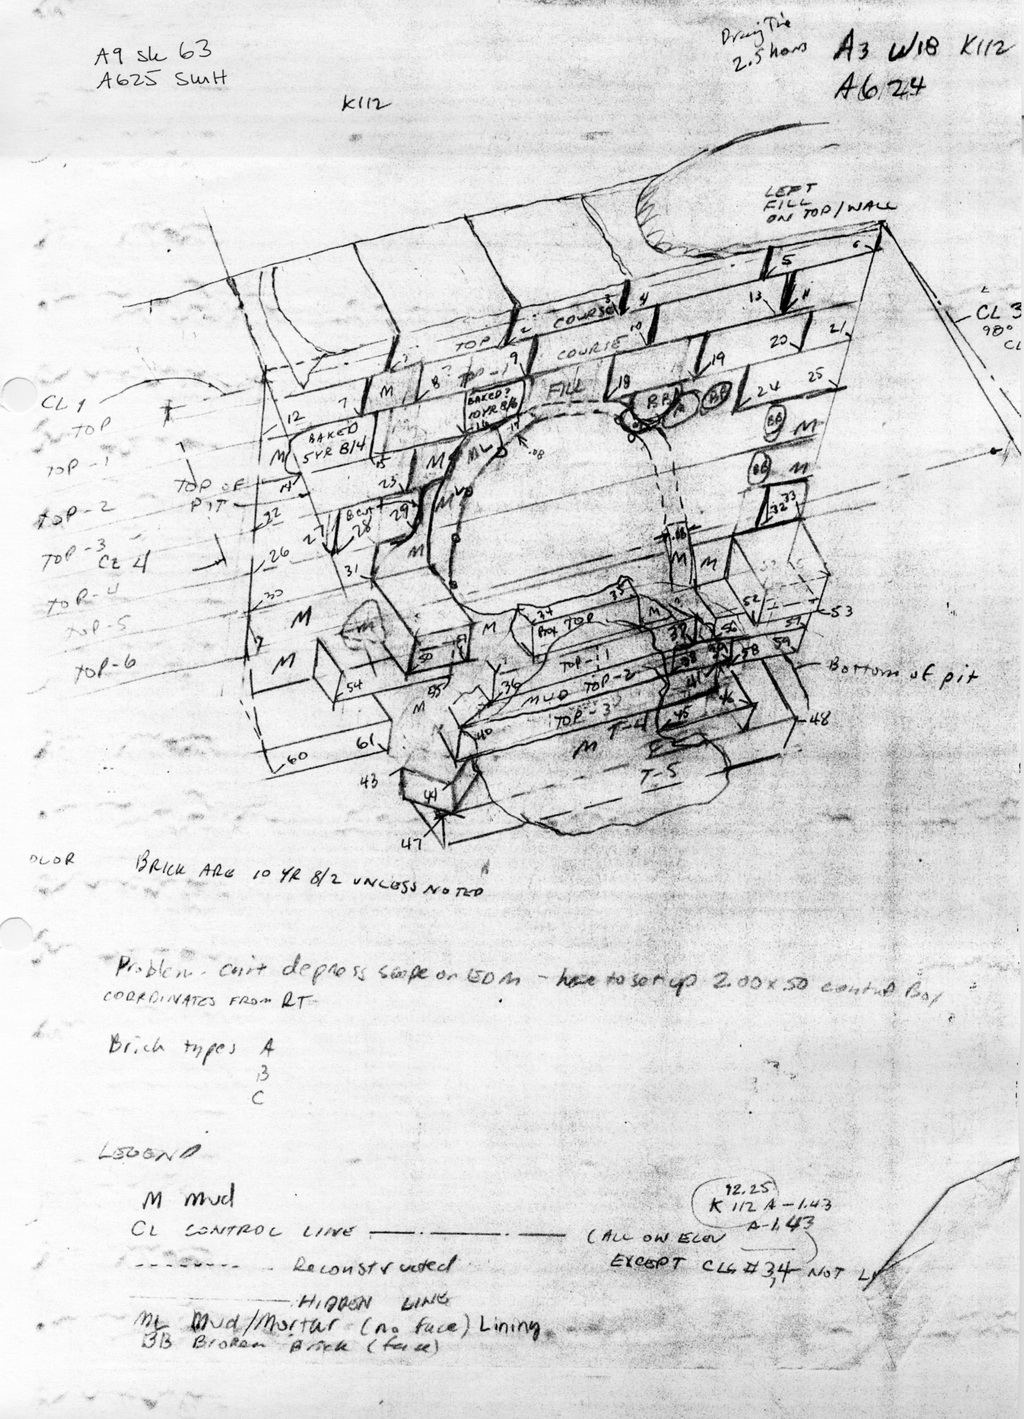 A9 sk 63
A625 SWH
K112
2.5 hours
A3 W18 K112
A624
LEFT
FILL
ON TOP/WALL
6
5
CL 3
90°
CL
3
4
13
11
TOP COURSE
2
1
10
21
20
9
TOP-1 COURSE
19
8
M
7
12
CL 1
TOP
FILL
18
BB
M
BB
24
25
BAKED?
10YR 8/6
BAKED
5YR 8/4
M
BB
M
TOP-1
M
ML
.08
15
14
TOP OF
PIT
23
BB
M
TOP-2
22
27
28
29
33
32
TOP-3
CL 4
26
M
M
M
31
TOP-4
30
M
TOP-5
M
34
35
BOX TOP
M
52
53
TOP-6
M
M
37
56
57
50
51
TOP-1
59
58
54
55
36
MUD TOP-2
Bottom of pit
M
40
TOP-3
41
46
45
T-4
48
61
60
M
T-5
43
44
47
OLOR
BRICK ARE 10 YR 8/2 UNLESS NOTED
Problem - can't depress scope on EDM - have to set up 2.00 x 50 control Box
COORDINATES FROM RT
Brick types A
B
C
LEGEND
M Mud
CL CONTROL LINE
Reconstructed
HIDDEN LINE
ML Mud/Mortar (no face) Lining
BB Broken Brick (face)
92.25
K 112 A-1.43
A-1.43
(ALL OW ELEV
EXCEPT CLS # 3,4 NOT L